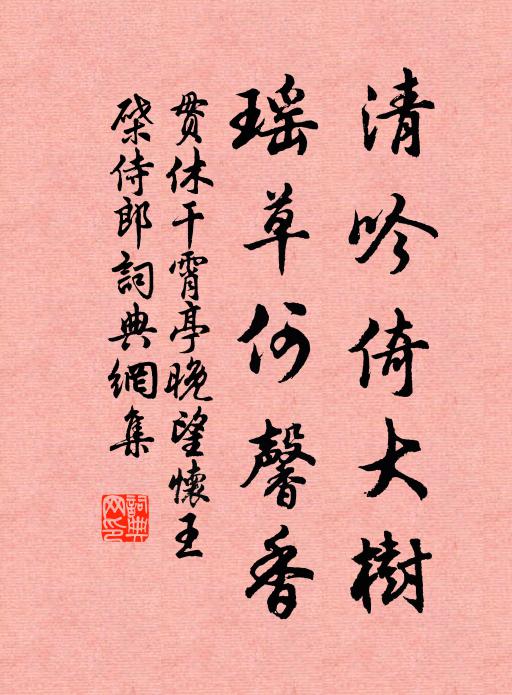 清吟倚大樹
瑶草何馨香
貫休干霄亭晚望懷王
棨侍郎詞典網集
詞典
网印